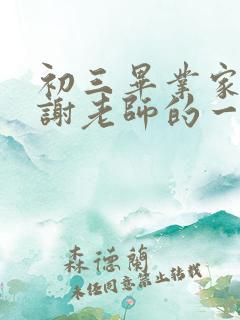 初三畢業家
謝老師的一
森德蘭
未经同意禁止转载